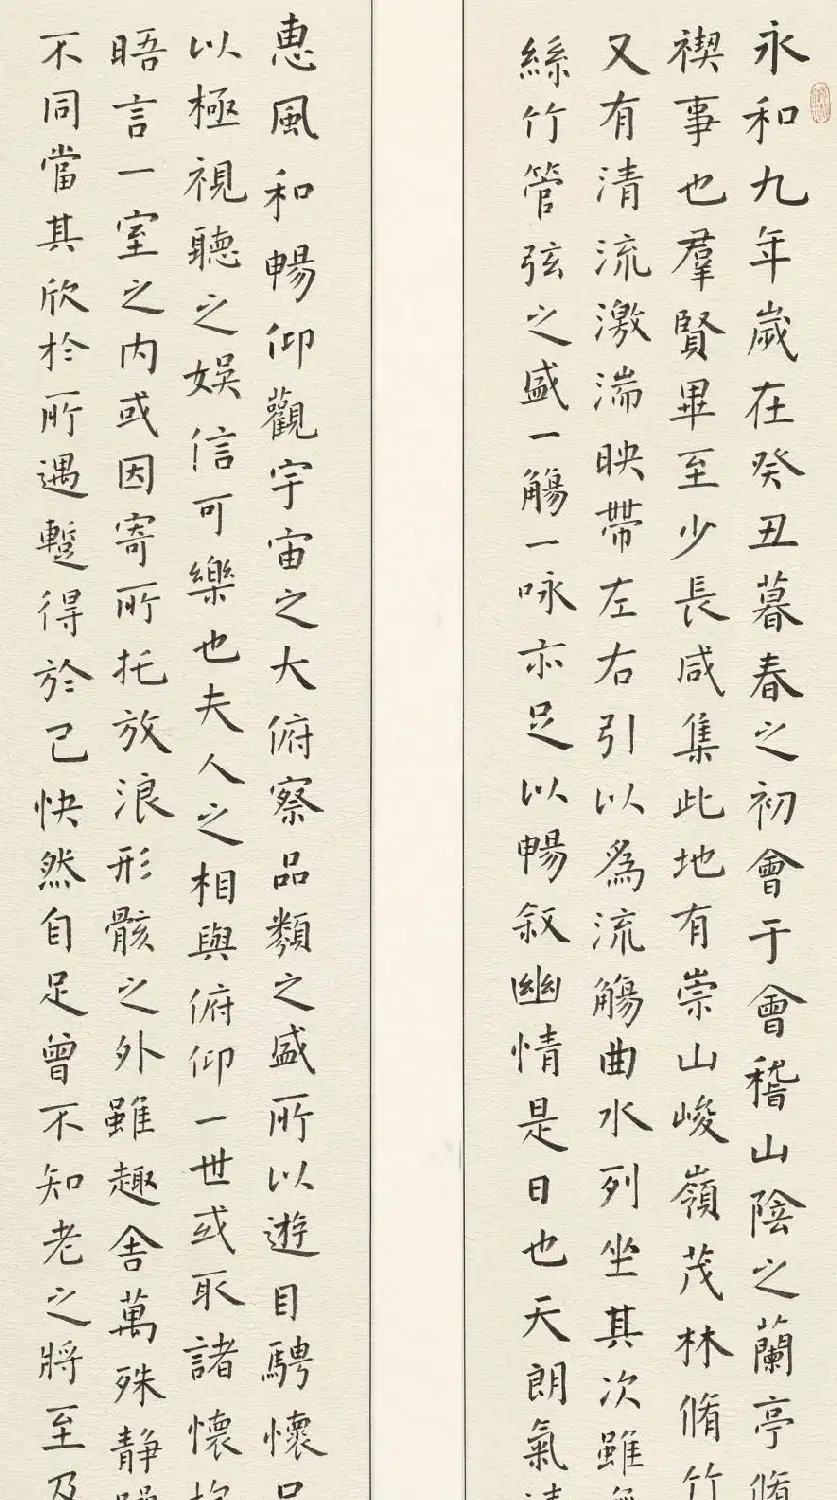 永和九年歲在癸丑暮春之初會于會稽山陰之蘭亭脩
禊事也羣賢畢至少長咸集此地有崇山峻嶺茂林脩竹
又有清流激湍映帶左右引以為流觴曲水列坐其次雖
絲竹管弦之盛一觴一咏亦足以暢叙幽情是日也天朗氣清
惠風和暢仰觀宇宙之大俯察品類之盛所以遊目騁懷足
以極視聽之娛信可樂也夫人之相與俯仰一世或取諸懷抱
晤言一室之内或因寄所托放浪形骸之外雖趣舍萬殊静躁
不同當其欣於所遇暫得於己快然自足曾不知老之將至及